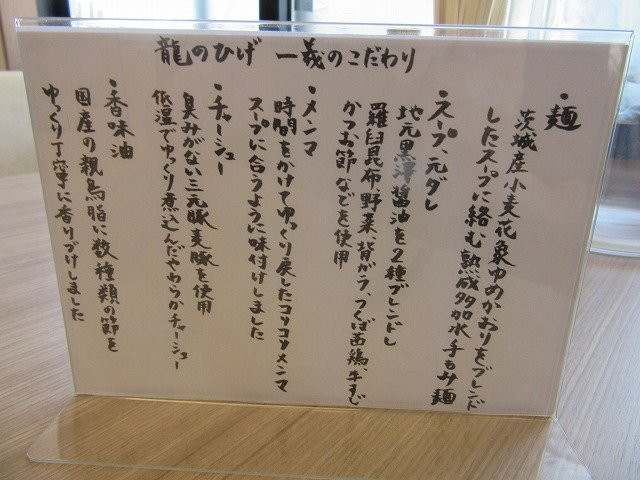 龍のひげ 一義のこだわり
・麺
茨城産小麦花象ゆめかおりをブレンド
したスープに絡む熟成多加水手もみ麺
・スープ、元ダレ
地元黒澤醤油を2種ブレンドし
羅臼昆布、野菜、背がラ、つくば茜鶏、牛すじ
かつお節などを使用
・メンマ
時間をかけてゆっくり戻したコリコリメンマ
スープに合うように味付けしました
・チャーシュー
臭みがない三元豚麦豚を使用
低温でゆっくり煮込んだやわらかチャーシュー
・香味油
国産の親鳥脂に数種類の節を
ゆっくり丁寧に香りづけしました